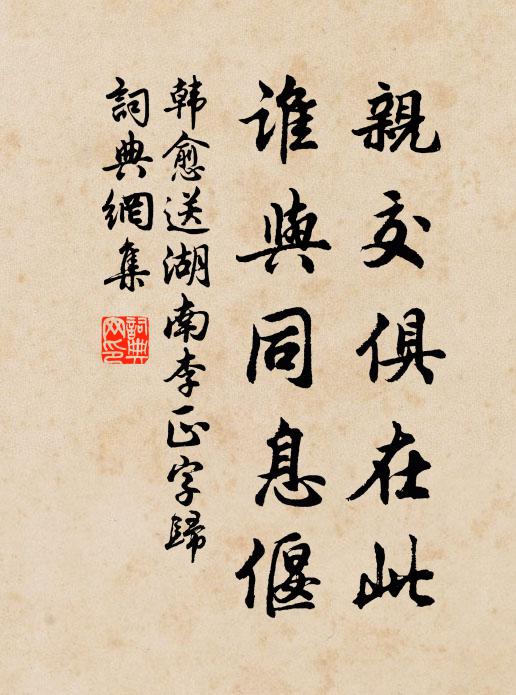 親交俱在此
誰與同息偃
韩愈送湖南李正字歸
詞典網集
詞典網印